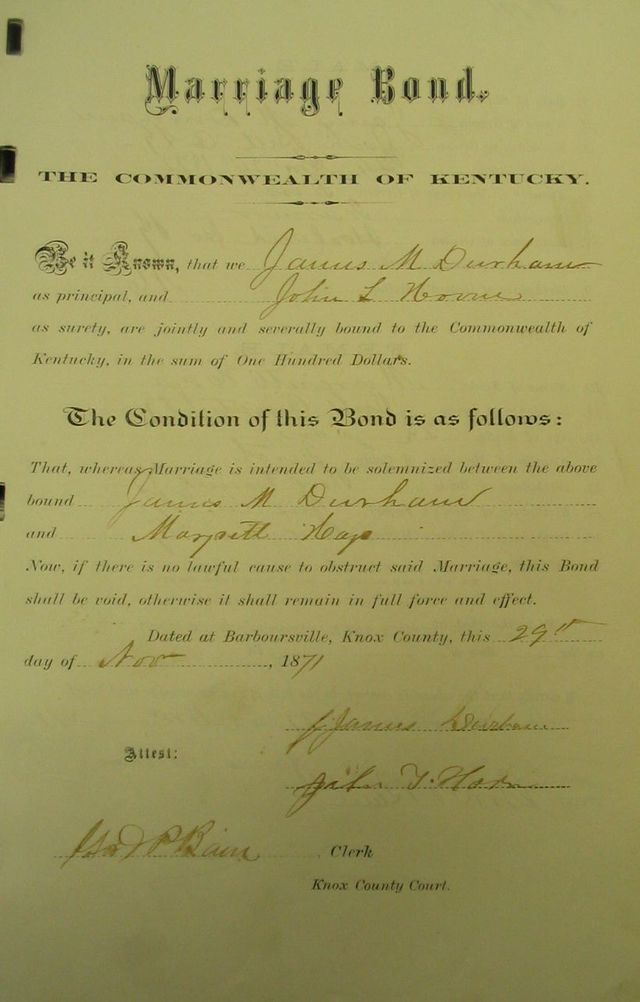 Marriage Bond.
THE COMMONWEALTH OF KENTUCKY.
Be it Known, that we James M Durham
as principal, and John L
as surety, are jointly and severally bound to the Commonwealth of
Kentucky, in the sum of One Hundred Dollars.
The Condition of this Bond is as follows:
That, whereas Marriage is intended to be solemnized between the above
bound James M Durham
and
Now, if there is no lawful cause to obstruct said Marriage, this Bond
shall be void, otherwise it shall remain in full force and effect.
Dated at Barboursville, Knox County, this 29th
day of Nov, 1871
James Durham
Attest:
John T.
Clerk
Knox County Court.